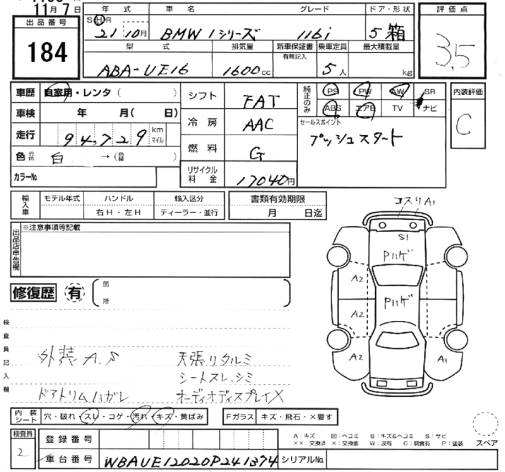 11月7日
年式 車名 グレード ドア・形状
出品番号 184
S H R 21年10月 BMW 1シリーズ 116i 5 箱
型式 排気量 新車保証書 乗車定員 最大積載量
有無記入
ABA-UE16 1600cc 5人 kg
評価点
3.5
内装評価
C
車歴 自家用・レンタ( )
車検 年 月( 日)
走行 94,729 km マイル
色 白 →( )
カラーNo
シフト FAT
冷房 AAC
燃料 G
リサイクル料金 17040円
純正のみ PS PW AW SR
ABS エアB TV ナビ
セールスポイント
プッシュスタート
輸入車 モデル年式 ハンドル 輸入区分
右H・左H ディーラー・並行
書類有効期限
月 日迄
※注意事項等記載
修復歴 有
検査員記入欄
外装A.S 天張リタルミ
シートスレ、シミ
ドアトリムハガレ オーディオディスプレイX
コスリA1
S1
Pハゲ
A2
Pハゲ
A2
A2
A2
A1
スペア
内装シート 穴・破れ・スレ・コゲ・汚れ・キズ・黄ばみ Fガラス キズ・飛石・X要す
検査員
2
登録番号
車台番号 WBAUE12020P241374 シリアルNo.
A:キズ